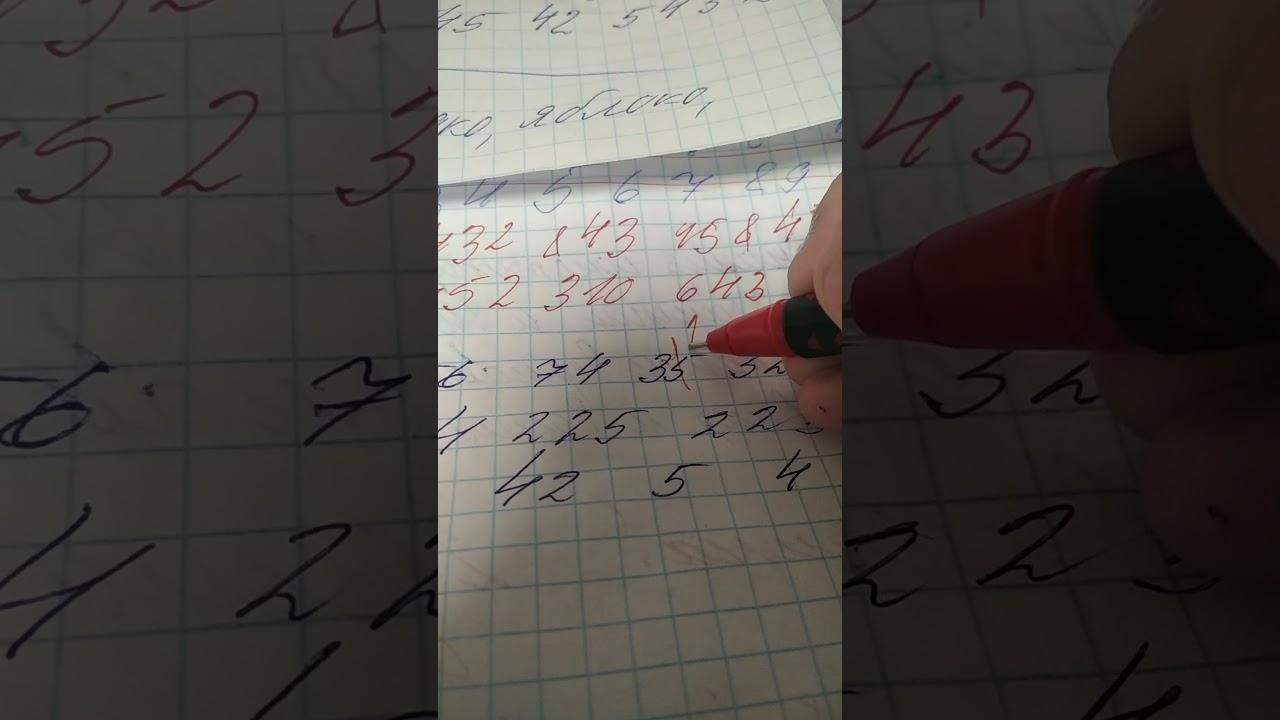 45 42 5 43
яблоко,
4 5 6 7 8 9
432 843 958 4
52 310 643
1
6. 74 35 32
4 225 22
42 5 4